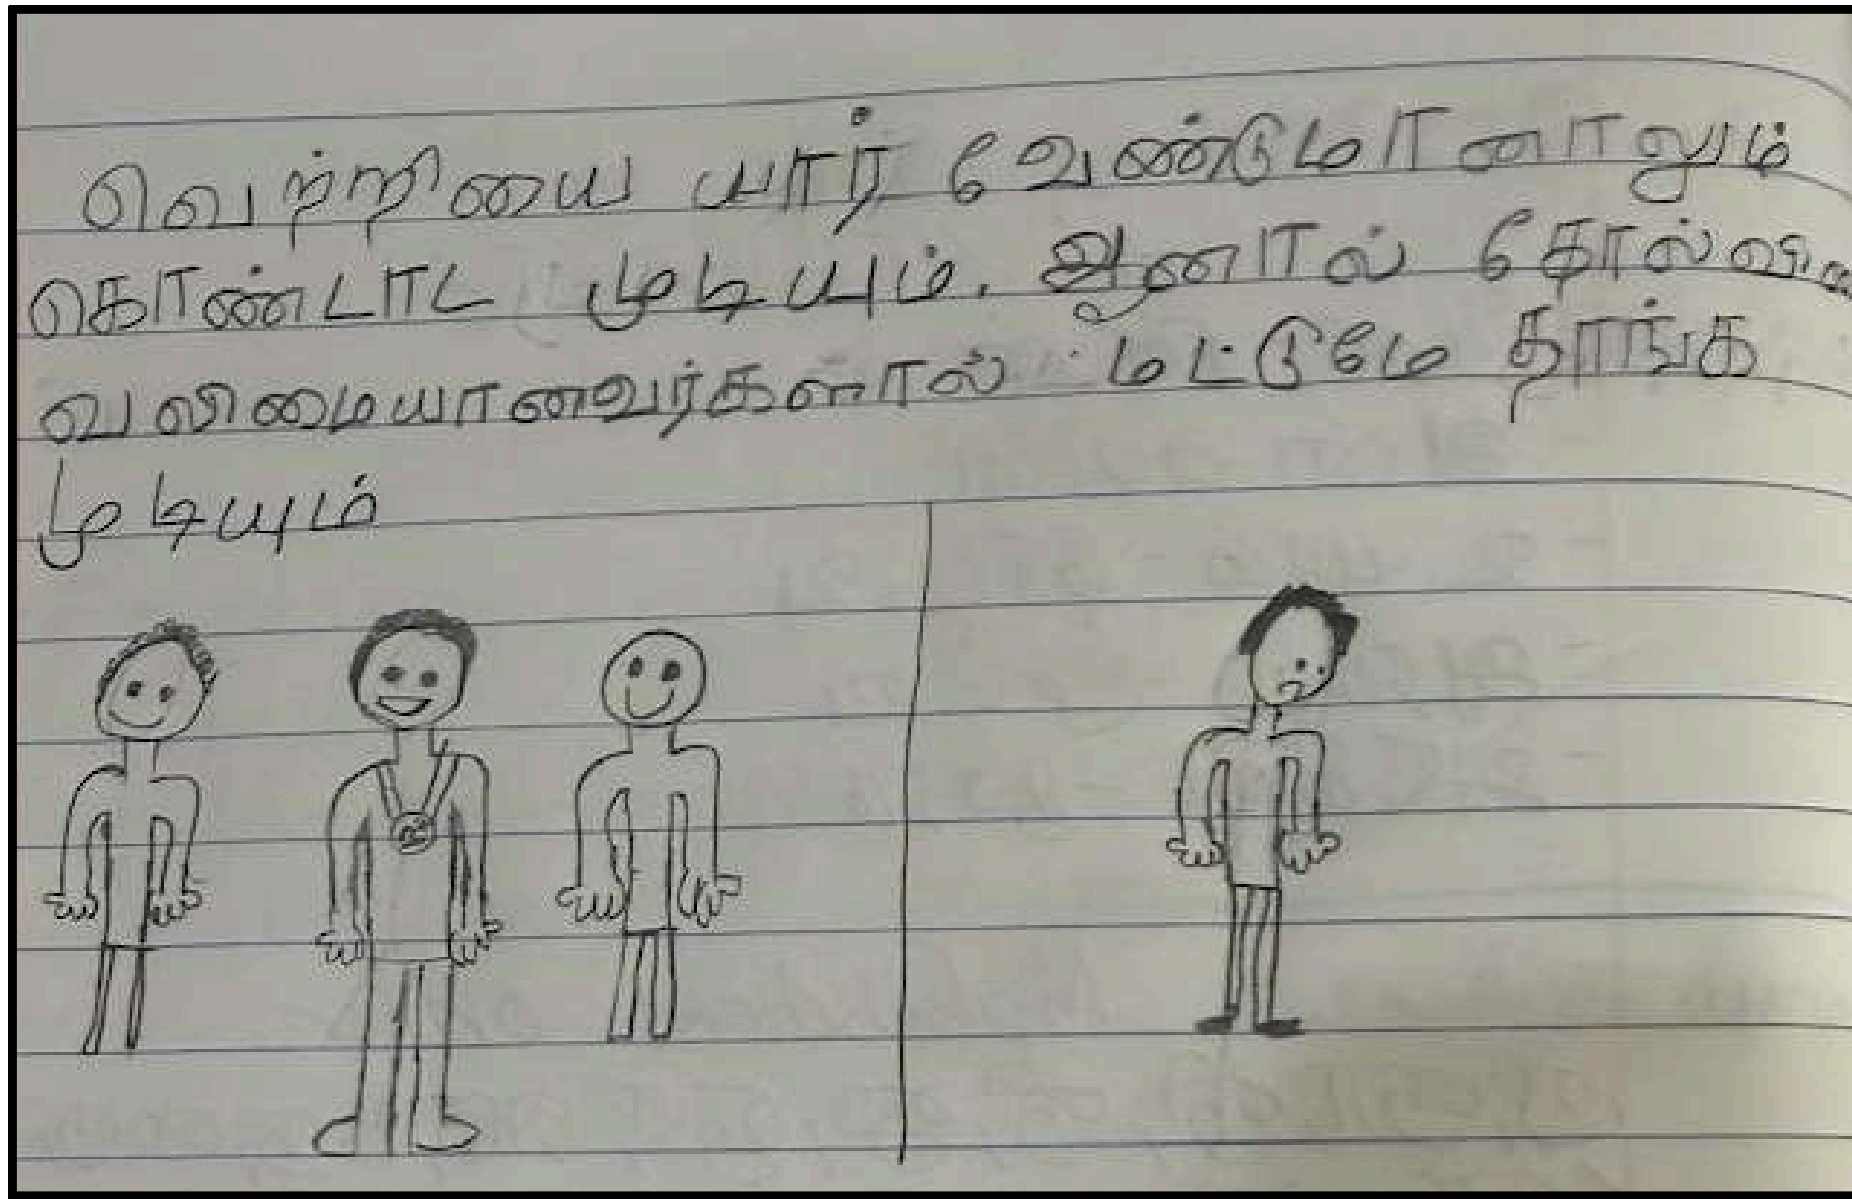 வெற்றியை யார் வேண்டுமானாலும்
கொண்டாட முடியும். ஆனால்
வலிமையானவர்களால் மட்டுமே தாங்க
முடியும்